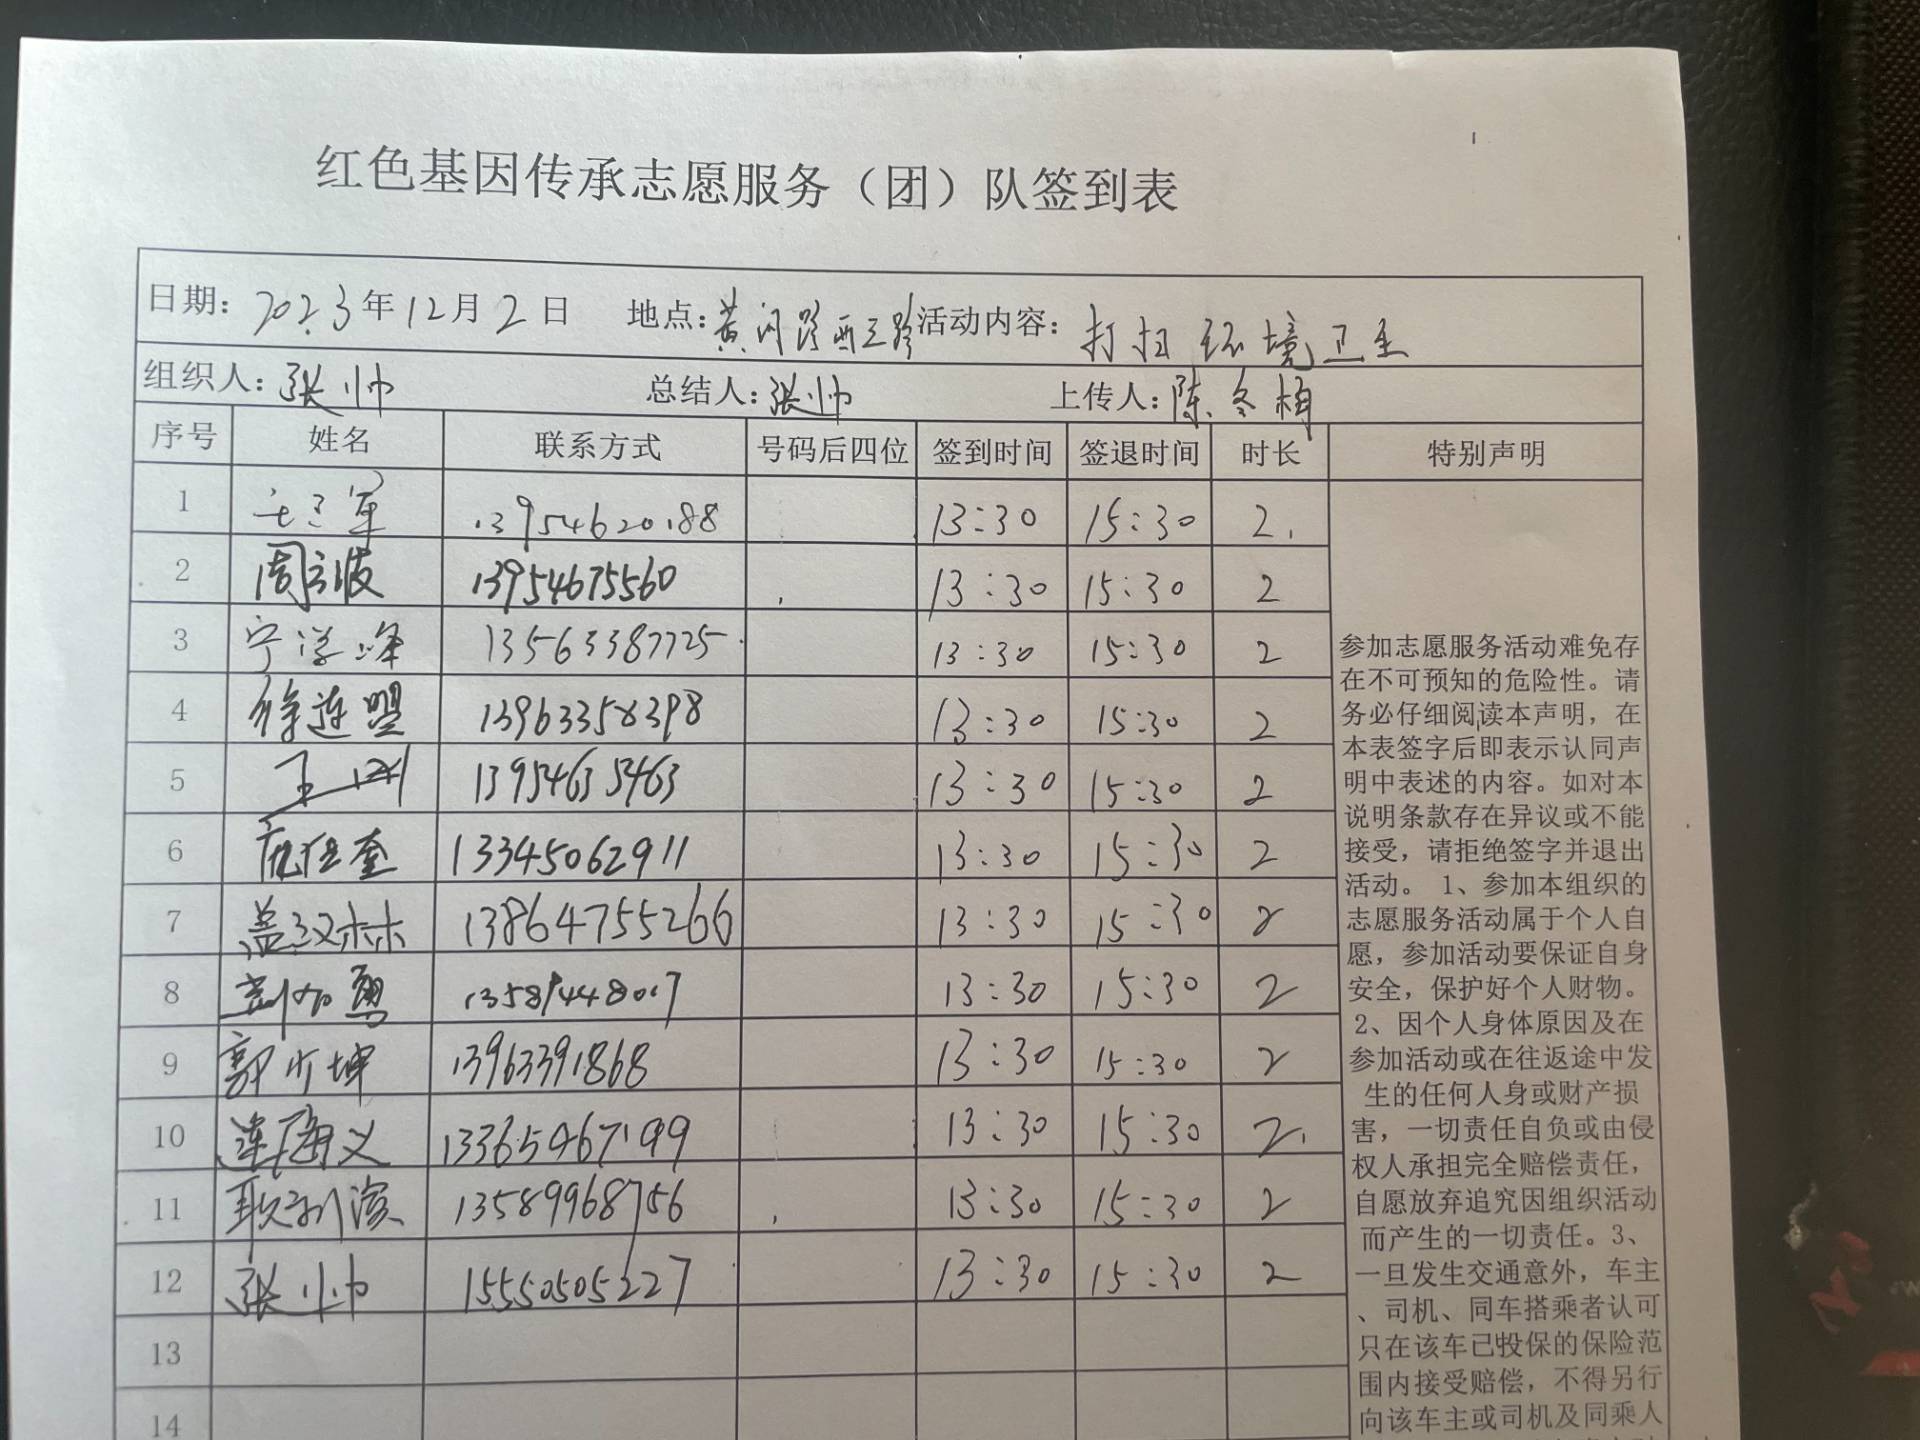 红色基因传承志愿服务（团）队签到表
日期：2023年12月2日 地点：黄河路西三路 活动内容：打扫环境卫生
组织人：张帅 总结人：张帅 上传人：陈冬梅
序号 姓名 联系方式 号码后四位 签到时间 签退时间 时长 特别声明
1 13954620188 13:30 15:30 2
2 13954675560 13:30 15:30 2
3 宁学峰 13563387725 13:30 15:30 2
4 徐连盟 13963358398 13:30 15:30 2
5 13954635463 13:30 15:30 2
6 13345062911 13:30 15:30 2
7 盖汉林 13864755266 13:30 15:30 2
8 13:30 15:30 2
9 13963391868 13:30 15:30 2
10 连海义 13365467199 13:30 15:30 2
11 13589968756 13:30 15:30 2
12 张帅 15550505227 13:30 15:30 2
13
14
参加志愿服务活动难免存
在不可预知的危险性。请
务必仔细阅读本声明，在
本表签字后即表示认同声
明中表述的内容。如对本
说明条款存在异议或不能
接受，请拒绝签字并退出
活动。1、参加本组织的
志愿服务活动属于个人自
愿，参加活动要保证自身
安全，保护好个人财物。
2、因个人身体原因及在
参加活动或在往返途中发
生的任何人身或财产损
害，一切责任自负或由侵
权人承担完全赔偿责任，
自愿放弃追究因组织活动
而产生的一切责任。3、
一旦发生交通意外，车主
、司机、同车搭乘者认可
只在该车已投保的保险范
围内接受赔偿，不得另行
向该车主或司机及同乘人